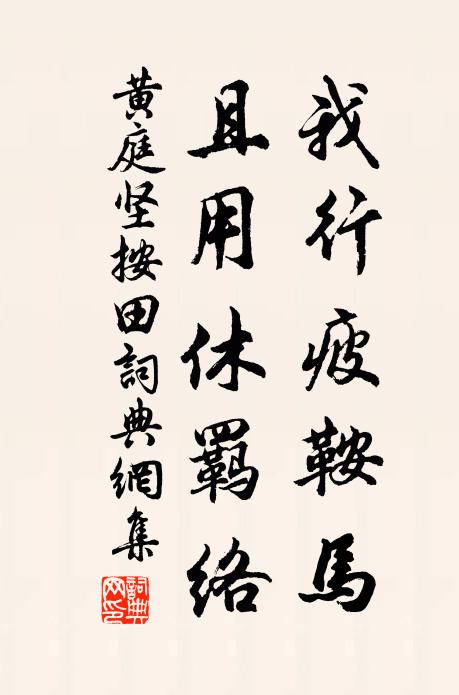 我行疲鞍馬
且用休羈絡
黃庭坚按田詞典網集
詞典网印